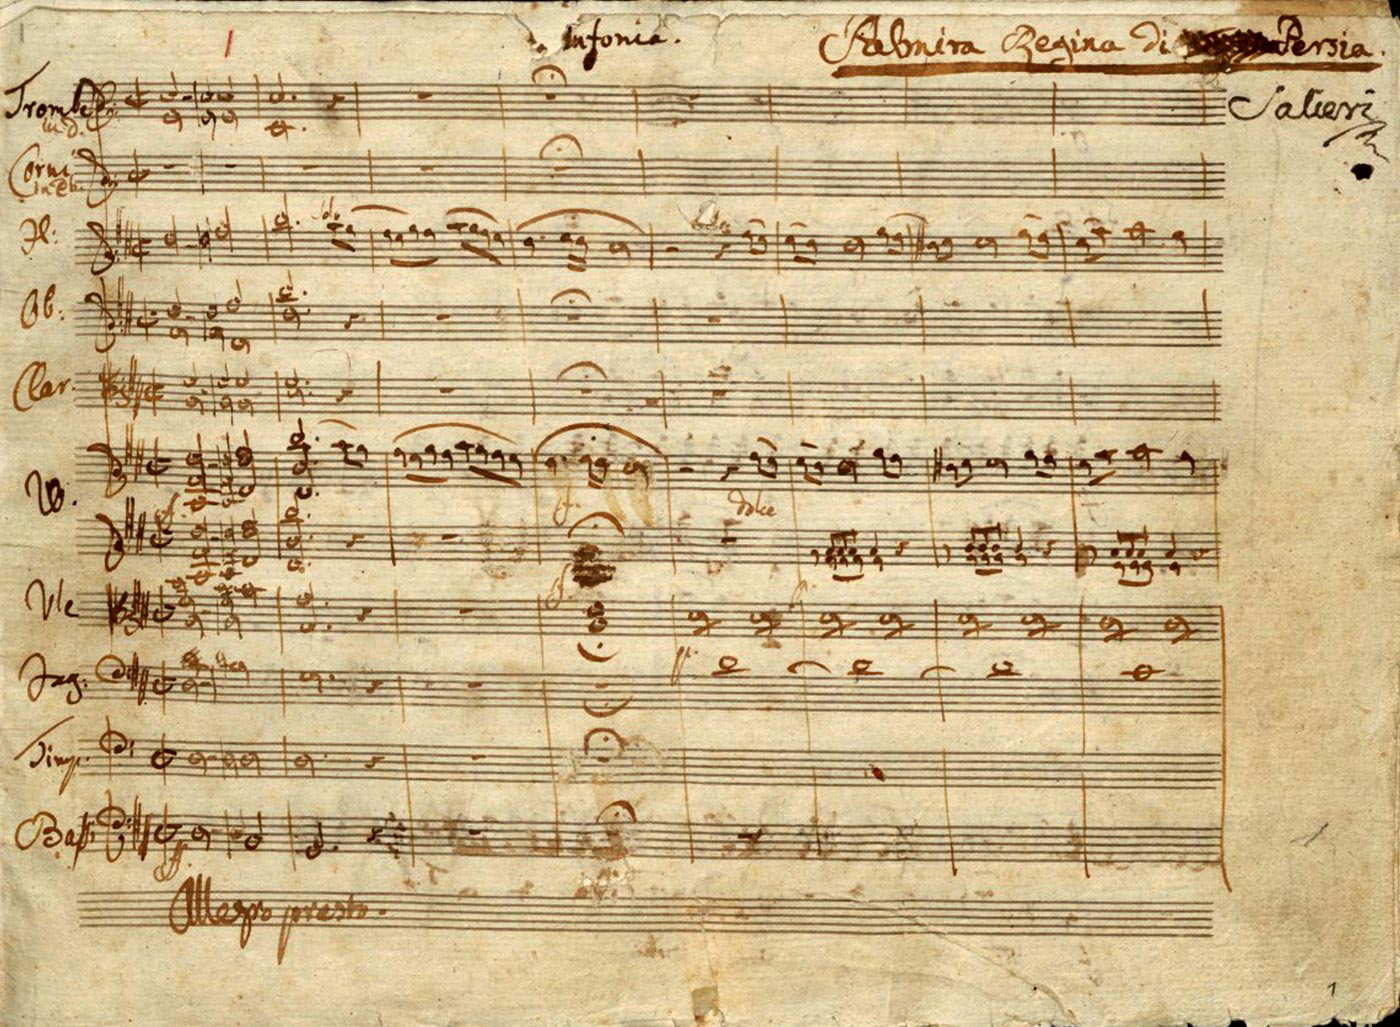 Sinfonia.
Palmira Regina di Persia.
Salieri
Trombe
in D.
Corni
in
Fl:
Ob:
Clar:
VV.
dolce
Vle
Fag:
Timp:
Bassi
ff
Allegro presto.
1